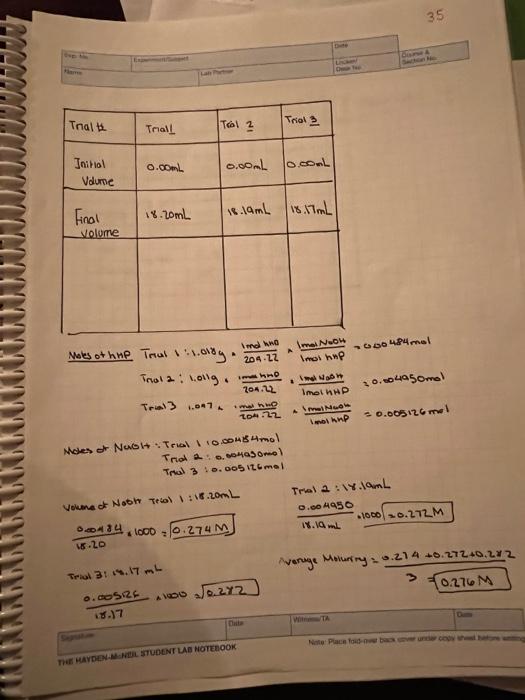 35
Exp. No.
Experiment/Subject
Date
Name
Lab Partner
Locker/
Desk No.
Course &
Section No.
Trial # Trial 1 Trial 2 Trial 3
Initial Volume 0.00mL 0.00mL 0.00mL
Final Volume 18.20mL 18.19mL 18.17mL
Moles of KHP Trial 1: 1.018g · 1mol KHP / 204.22 · 1mol NaOH / 1mol KHP = 0.00484mol
Trial 2: 1.011g · 1mol KHP / 204.22 · 1mol NaOH / 1mol KHP = 0.004950mol
Trial 3 1.047 · 1mol KHP / 204.22 · 1mol NaOH / 1mol KHP = 0.005126 mol
Moles of NaOH: Trial 1: 0.00484mol
Trial 2: 0.004950mol
Trial 3: 0.005126mol
Volume of NaOH Trial 1: 18.20mL
0.00484 / 18.20 × 1000 = 0.274M
Trial 2: 18.19mL
0.004950 / 18.19mL × 1000 = 0.272M
Trial 3: 18.17 mL
0.005126 / 18.17 × 1000 = 0.282
Average Molarity = 0.274 + 0.272 + 0.282 / 3 = 0.276M
Signature
Date
Witness/TA
Date
THE HAYDEN-McNEIL STUDENT LAB NOTEBOOK
Note: Place fold-over back cover under copy sheet before writing